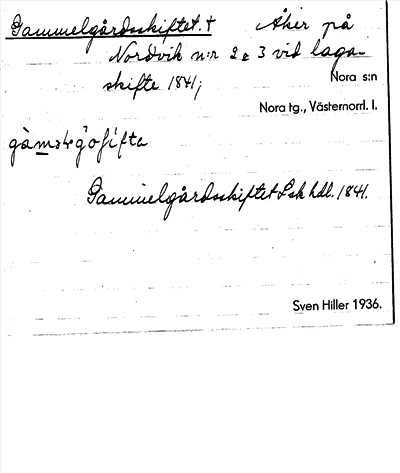 Gammelgårdsskiftet. † Åker på
Nordvik n:r 2 & 3 vid laga
skifte 1841;
Nora s:n
Nora tg., Västernorrl. l.
Gammelgårdsskiftet Lsk hdl. 1841.
Sven Hiller 1936.